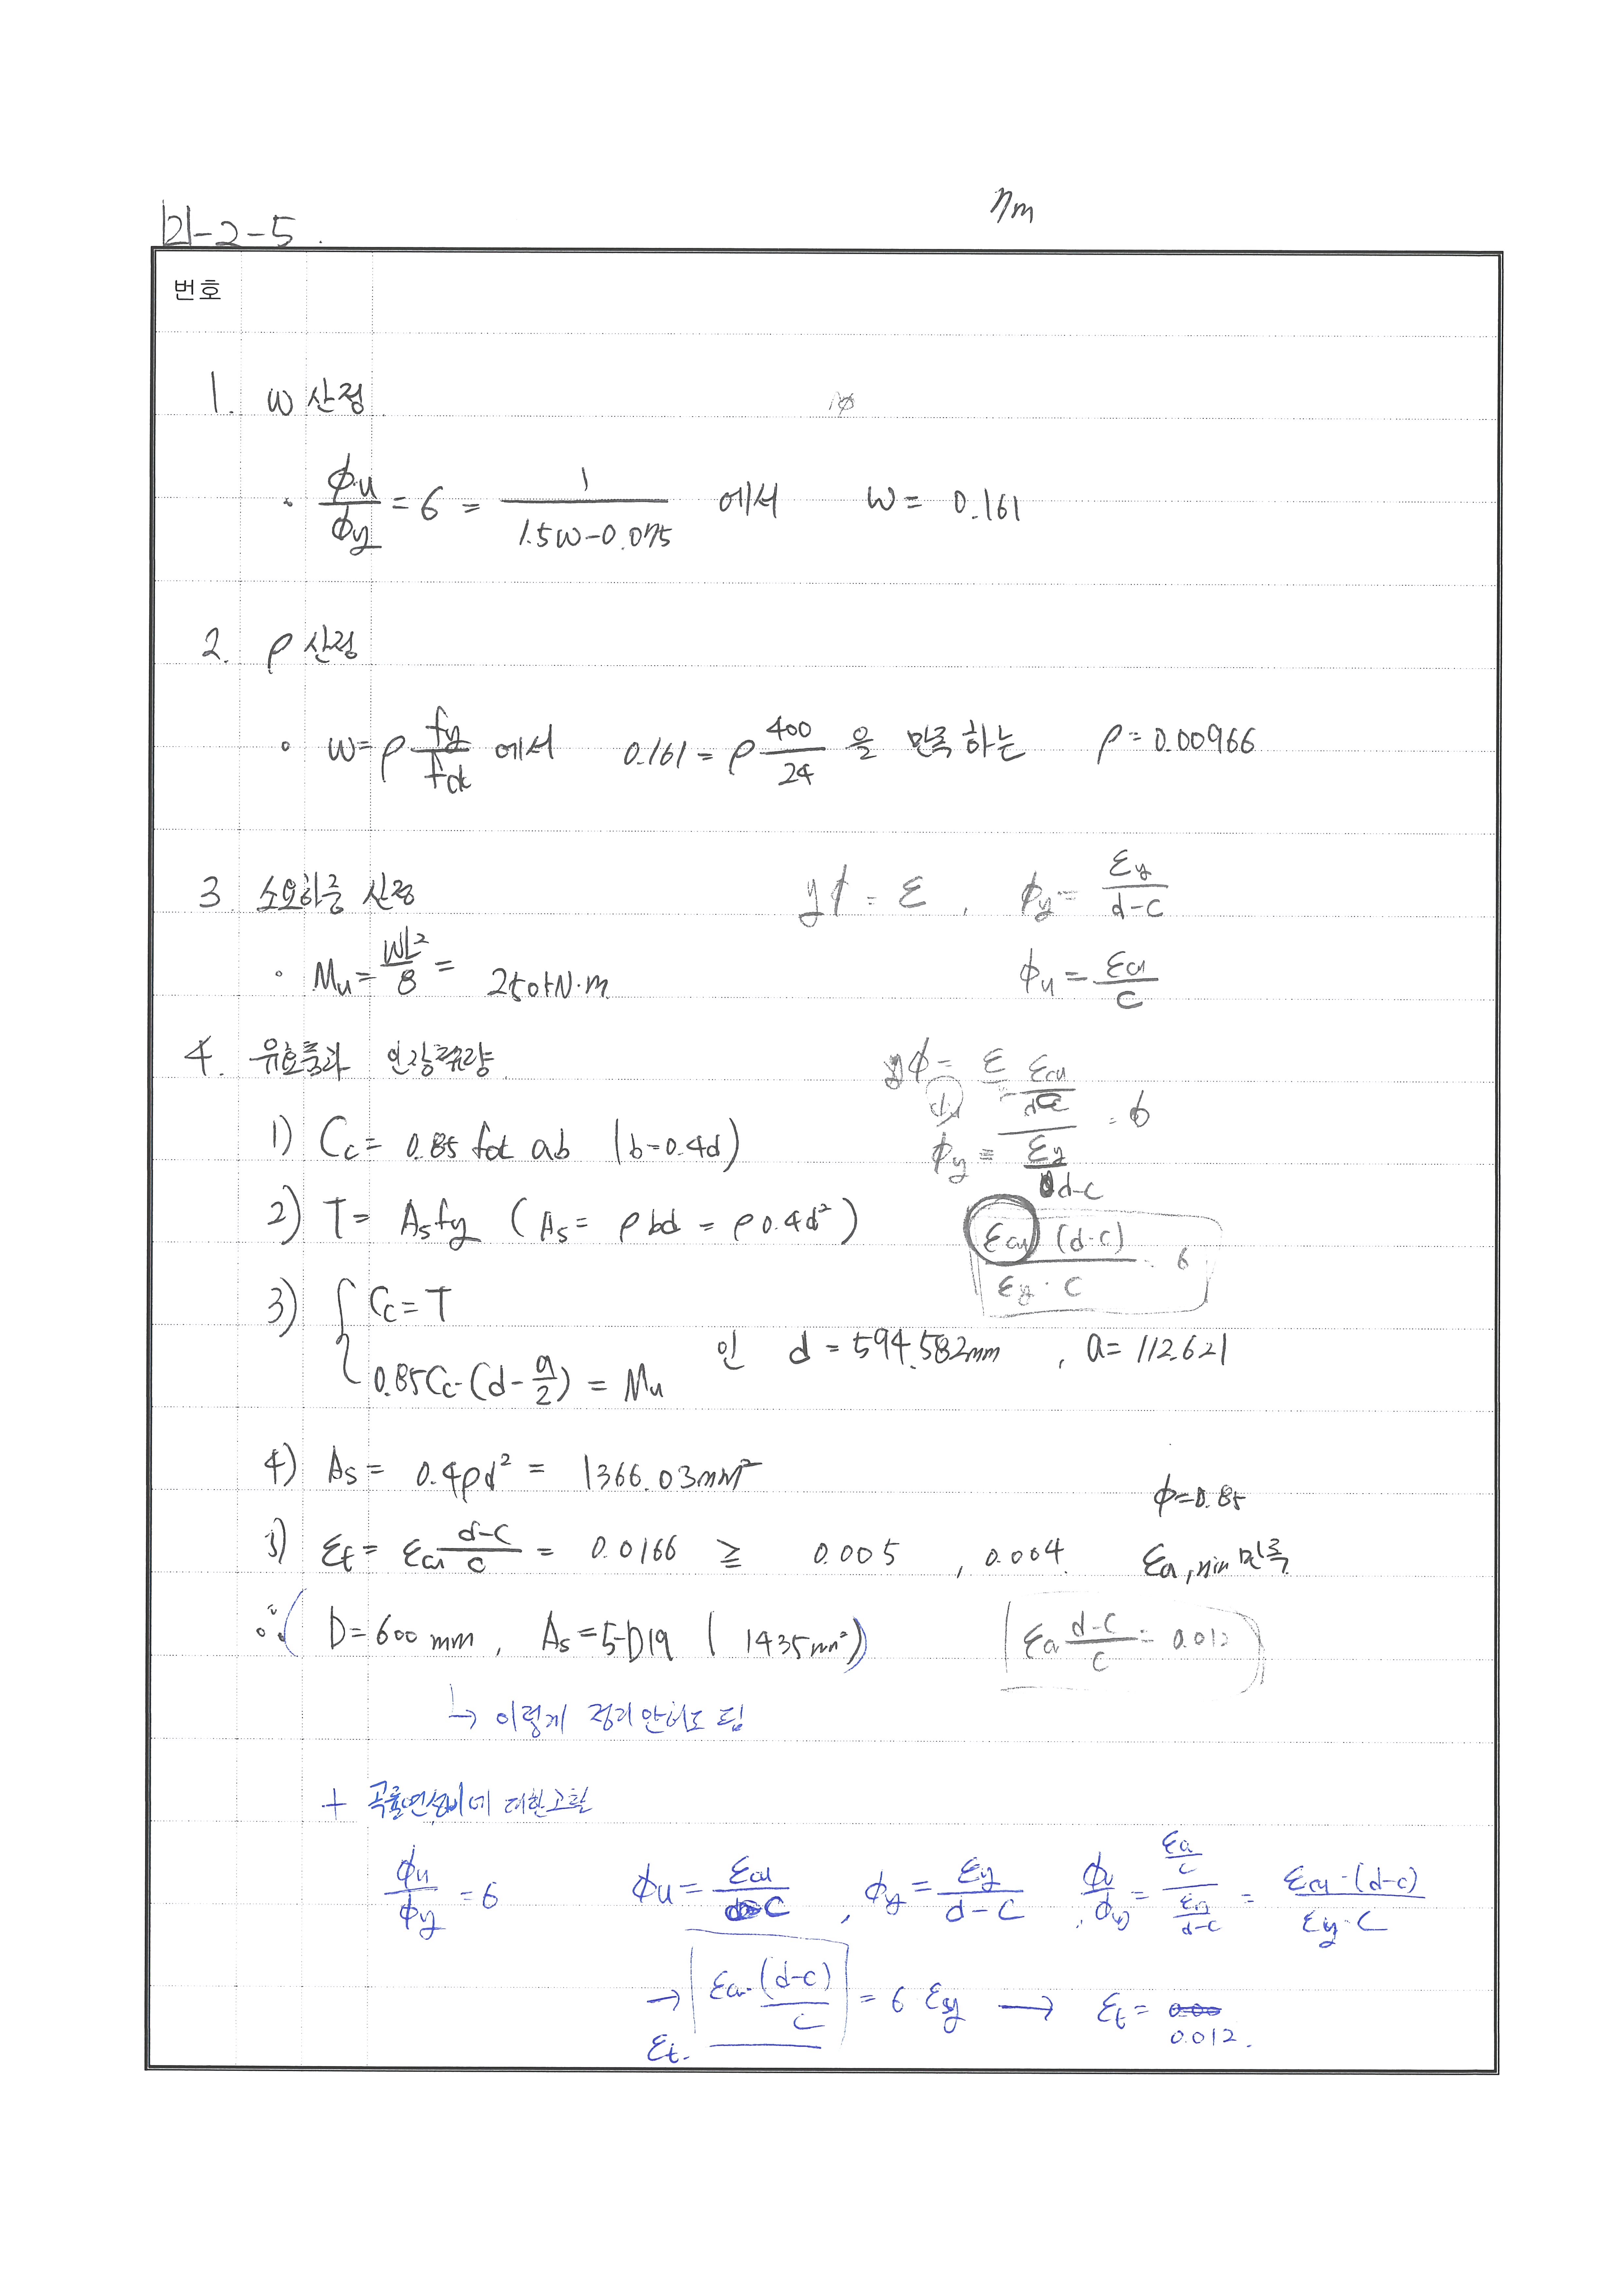 121-2-5.
ηm
번호
1. w 산정
1φ
· φu/φy = 6 = 1/(1.5w-0.075) 에서 w = 0.161
2. ρ 산정
∘ w = ρ fy/fck 에서 0.161 = ρ 400/24 을 만족하는 ρ = 0.00966
3. 소요하중 산정
yφ = ε , φy = εy/(d-c)
∘ Mu = WL²/8 = 250kN·m
φu = εcu/c
4. 유효춤과 인장철근량
yφ = ε
1) Cc = 0.85 fck ab (b=0.4d)
φu/φy = (εcu/c)/(εy/(d-c)) = 6
2) T = As fy (As = ρbd = ρ0.4d²)
εcu (d-c)/(εy · c) = 6
3) { Cc = T
0.85Cc·(d-a/2) = Mu 인 d = 594.582mm , a = 112.621
4) As = 0.4ρd² = 1366.03mm²
φ=0.85
5) εt = εcu (d-c)/c = 0.0166 ≧ 0.005 , 0.004 εa,min 만족
∴ ( D = 600 mm , As = 5-D19 ( 1435mm²)
εcu (d-c)/c = 0.012
↳ 이렇게 정리 안해도 됨
+ 곡률연성비에 대한 고찰
φu/φy = 6 φu = εcu/c , φy = εy/(d-c) , φu/φy = (εcu/c)/(εy/(d-c)) = εcu·(d-c)/(εy·c)
→ εcu·(d-c)/c = 6 εsy → εt = 0.00
εt. 0.012.